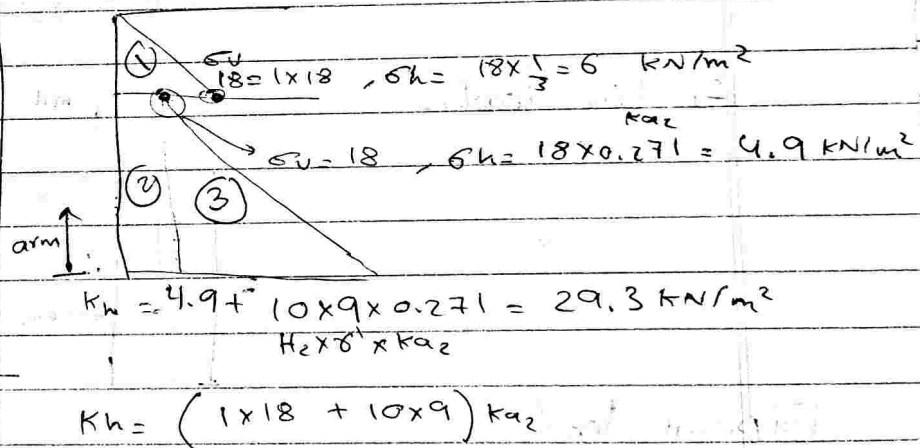 ①
σv
18 = 1×18 , σh = 18×1/3 = 6 kN/m²
ka2
σv = 18 , σh = 18×0.271 = 4.9 kN/m²
② ③
arm
Kh = 4.9 + 10×9×0.271 = 29.3 kN/m²
H2×γ'×ka2
Kh = (1×18 + 10×9) ka2